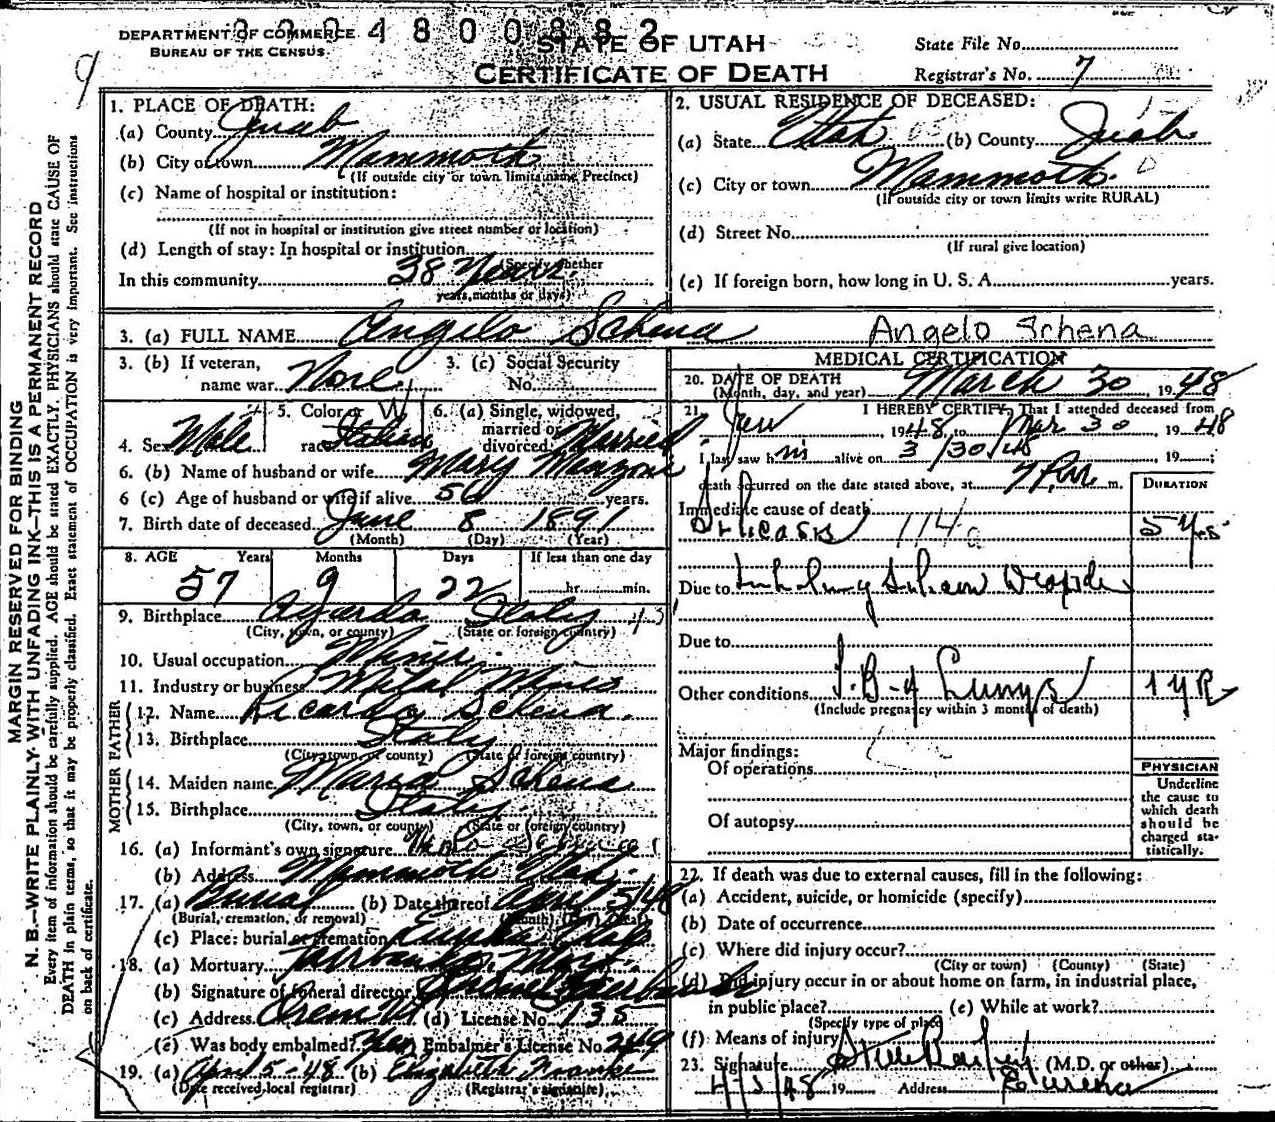 DEPARTMENT OF COMMERCE
BUREAU OF THE CENSUS
STATE OF UTAH
CERTIFICATE OF DEATH
State File No.
Registrar's No. 7
9
MARGIN RESERVED FOR BINDING
N. B.—WRITE PLAINLY, WITH UNFADING INK—THIS IS A PERMANENT RECORD
Every item of information should be carefully supplied. AGE should be stated EXACTLY. PHYSICIANS should state CAUSE OF
DEATH in plain terms, so that it may be properly classified. Exact statement of OCCUPATION is very important. See instructions
on back of certificate.
1. PLACE OF DEATH:
(a) County Juab
(b) City or town Mammoth
(If outside city or town limits name Precinct)
(c) Name of hospital or institution:
(If not in hospital or institution give street number or location)
(d) Length of stay: In hospital or institution
(Specify whether
In this community 38 Years
years, months or days)
2. USUAL RESIDENCE OF DECEASED:
(a) State Utah (b) County Juab
(c) City or town Mammoth
(If outside city or town limits write RURAL)
(d) Street No.
(If rural give location)
(e) If foreign born, how long in U. S. A. years.
3. (a) FULL NAME Angelo Schena Angelo Schena
3. (b) If veteran, name war None
3. (c) Social Security No.
4. Sex Male
5. Color or race W Italian
6. (a) Single, widowed, married or divorced Married
6. (b) Name of husband or wife Mary
6 (c) Age of husband or wife if alive 50 years.
7. Birth date of deceased June 8 1891
(Month) (Day) (Year)
8. AGE Years Months Days If less than one day
57 9 22 hr. min.
9. Birthplace Italy
(City, town, or county) (State or foreign country)
10. Usual occupation Miner
11. Industry or business Metal Mines
FATHER
12. Name Ricardo Schena
13. Birthplace Italy
(City, town, or county) (State or foreign country)
MOTHER
14. Maiden name Maria Schena
15. Birthplace Italy
(City, town, or county) (State or foreign country)
16. (a) Informant's own signature
(b) Address Mammoth Utah
17. (a) Burial (b) Date thereof April 5/48
(Burial, cremation, or removal) (Month) (Day) (Year)
(c) Place: burial or cremation Eureka Utah
18. (a) Mortuary Fairbanks Mort.
(b) Signature of funeral director Fairbanks
(c) Address Orem Ut (d) License No. 135
(e) Was body embalmed? Yes Embalmer's License No. 249
19. (a) April 5-48 (b) Elizabeth Franke
(Date received local registrar) (Registrar's signature)
MEDICAL CERTIFICATION
20. DATE OF DEATH March 30 1948
(Month, day, and year)
21. I HEREBY CERTIFY, That I attended deceased from
Jan 1948 to Mar 30 1948
I last saw him alive on 3/30/48 19 ;
death occurred on the date stated above, at 7 P.m. m.
DURATION
Immediate cause of death
Silicosis 114a 5 yrs
Due to
Due to
Other conditions T.B. of Lungs 1 yr
(Include pregnancy within 3 months of death)
Major findings:
Of operations
Of autopsy
PHYSICIAN
Underline
the cause to
which death
should be
charged sta-
tistically.
22. If death was due to external causes, fill in the following:
(a) Accident, suicide, or homicide (specify)
(b) Date of occurrence
(c) Where did injury occur?
(City or town) (County) (State)
(d) Did injury occur in or about home on farm, in industrial place,
in public place? (e) While at work?
(Specify type of place)
(f) Means of injury
23. Signature (M.D. or other)
19 Address Eureka